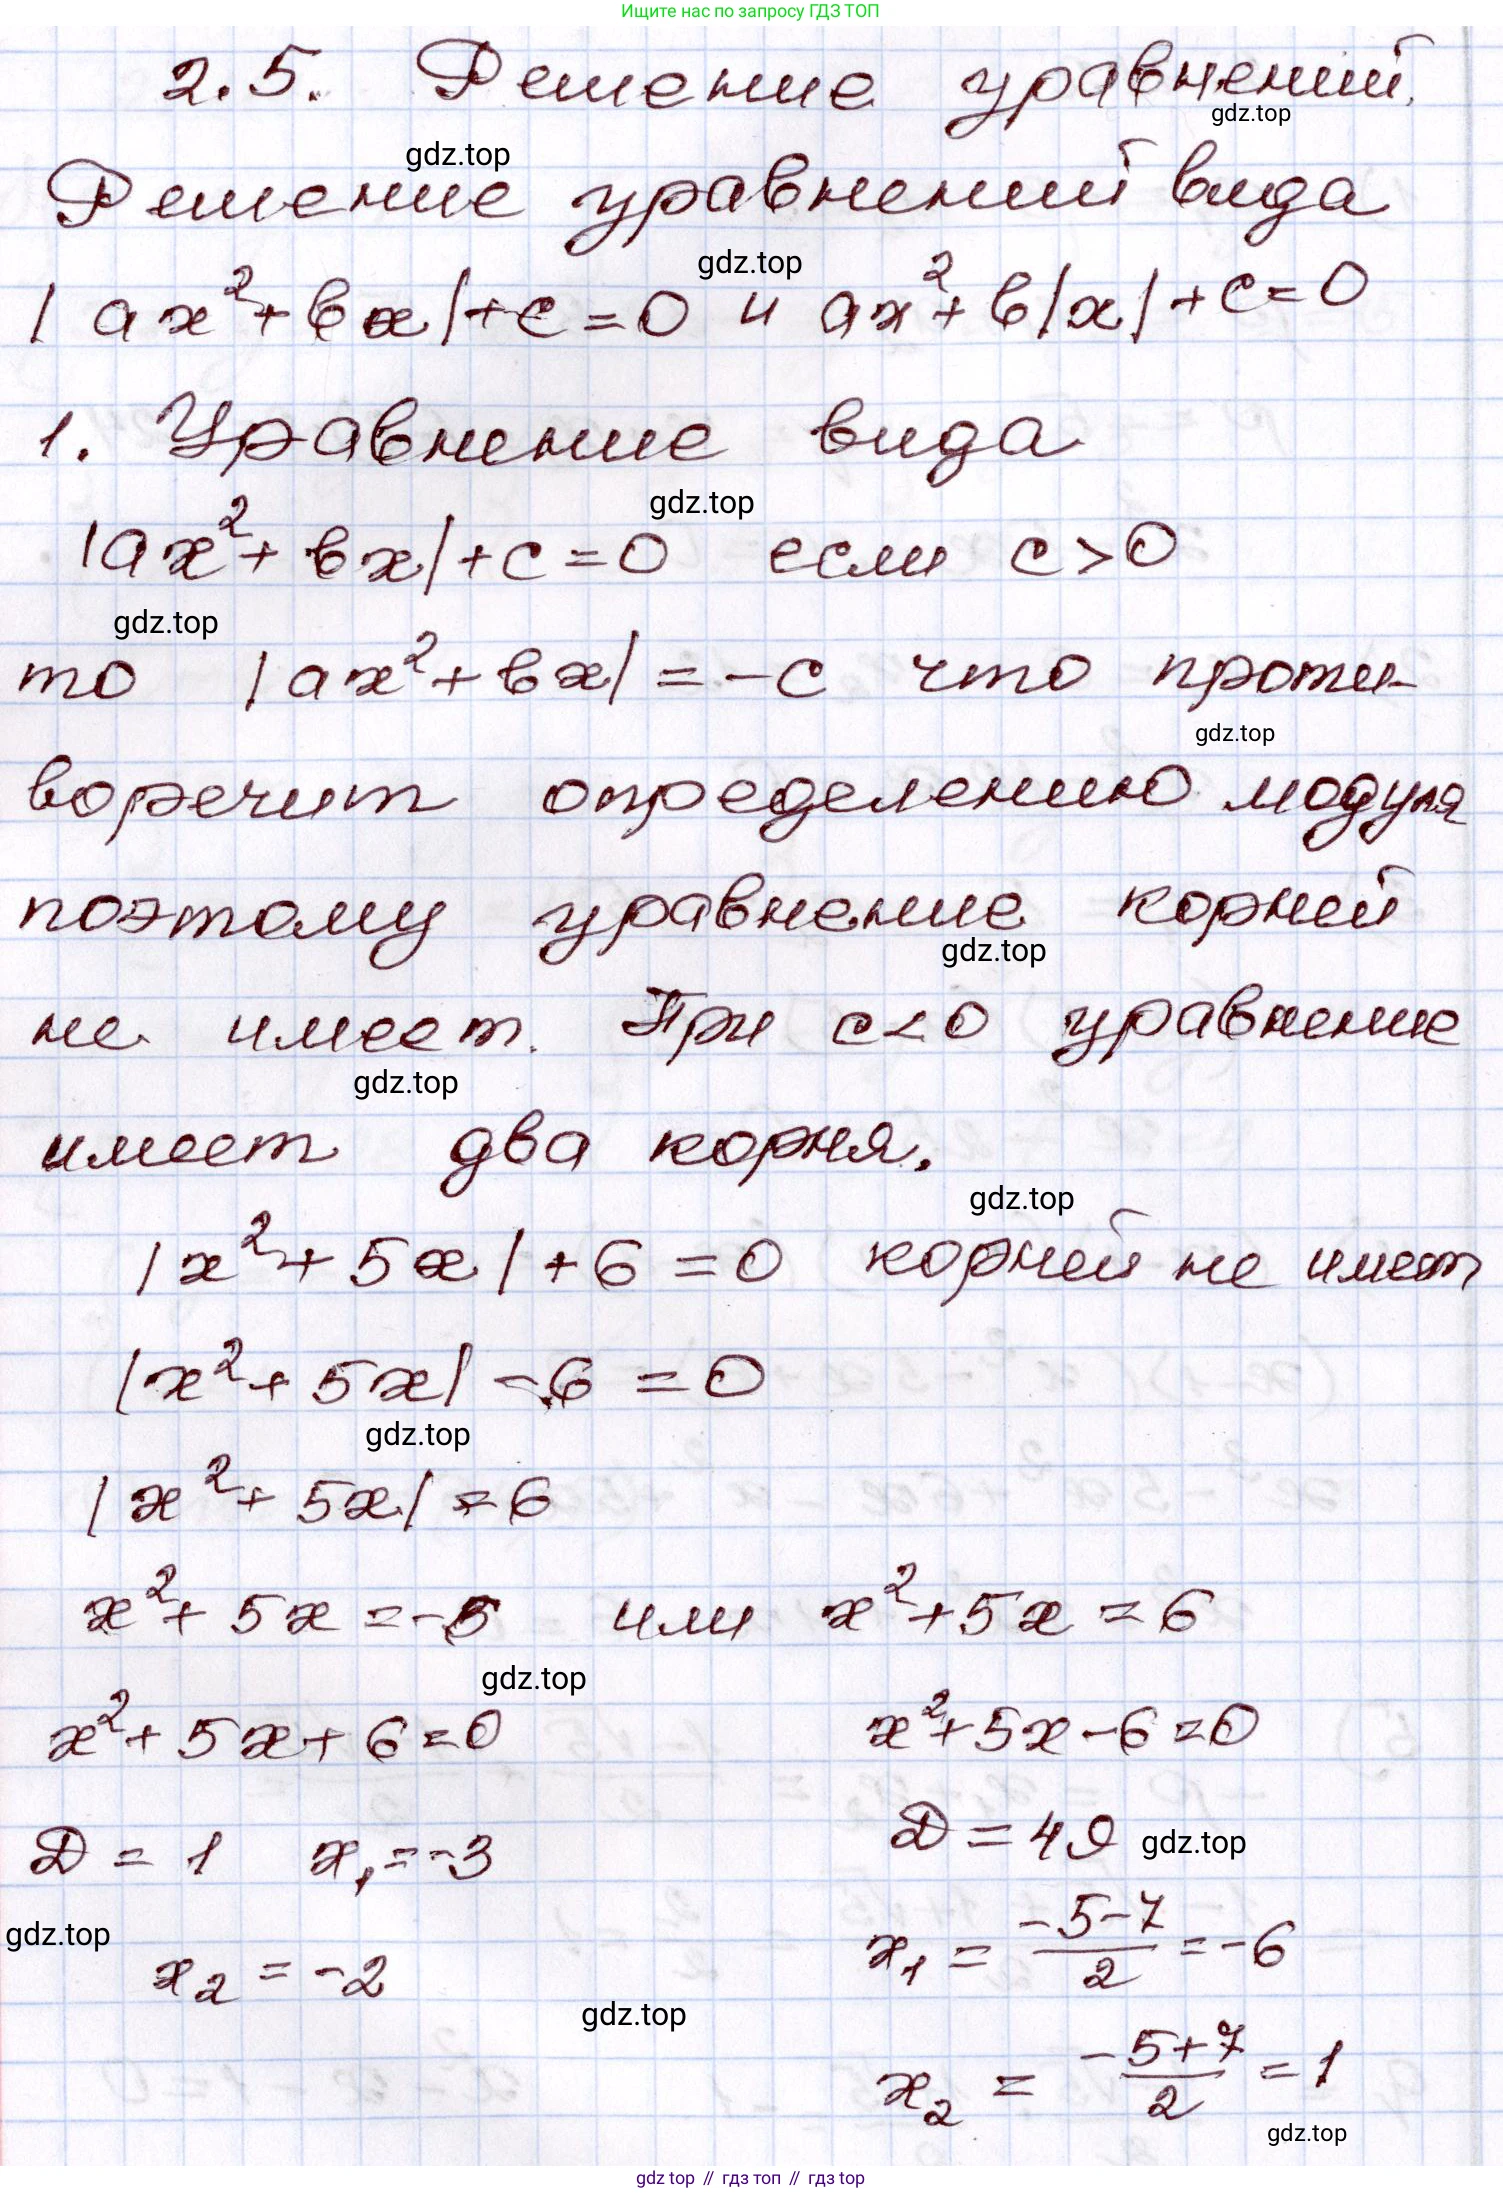 Ищите нас по запросу ГДЗ ТОП
2.5. Решение уравнений.
gdz.top
gdz.top
Решение уравнений вида
gdz.top
|ax²+bx|+c=0 и ax²+b|x|+c=0
1. Уравнение вида
gdz.top
|ax²+bx|+c=0 если c>0
gdz.top
то |ax²+bx|=-c что проти-
gdz.top
воречит определению модуля
поэтому уравнение корней
gdz.top
не имеет. При c<0 уравнение
gdz.top
имеет два корня.
gdz.top
|x²+5x|+6=0 корней не имеет
|x²+5x|-6=0
gdz.top
|x²+5x|=6
x²+5x=-5 или x²+5x=6
gdz.top
x²+5x+6=0 x²+5x-6=0
D=1 x₁=-3 D=49 gdz.top
gdz.top
x₂=-2 x₁=\frac{-5-7}{2}=-6
gdz.top
x₂=\frac{-5+7}{2}=1
gdz.top
gdz top // гдз топ // гдз top